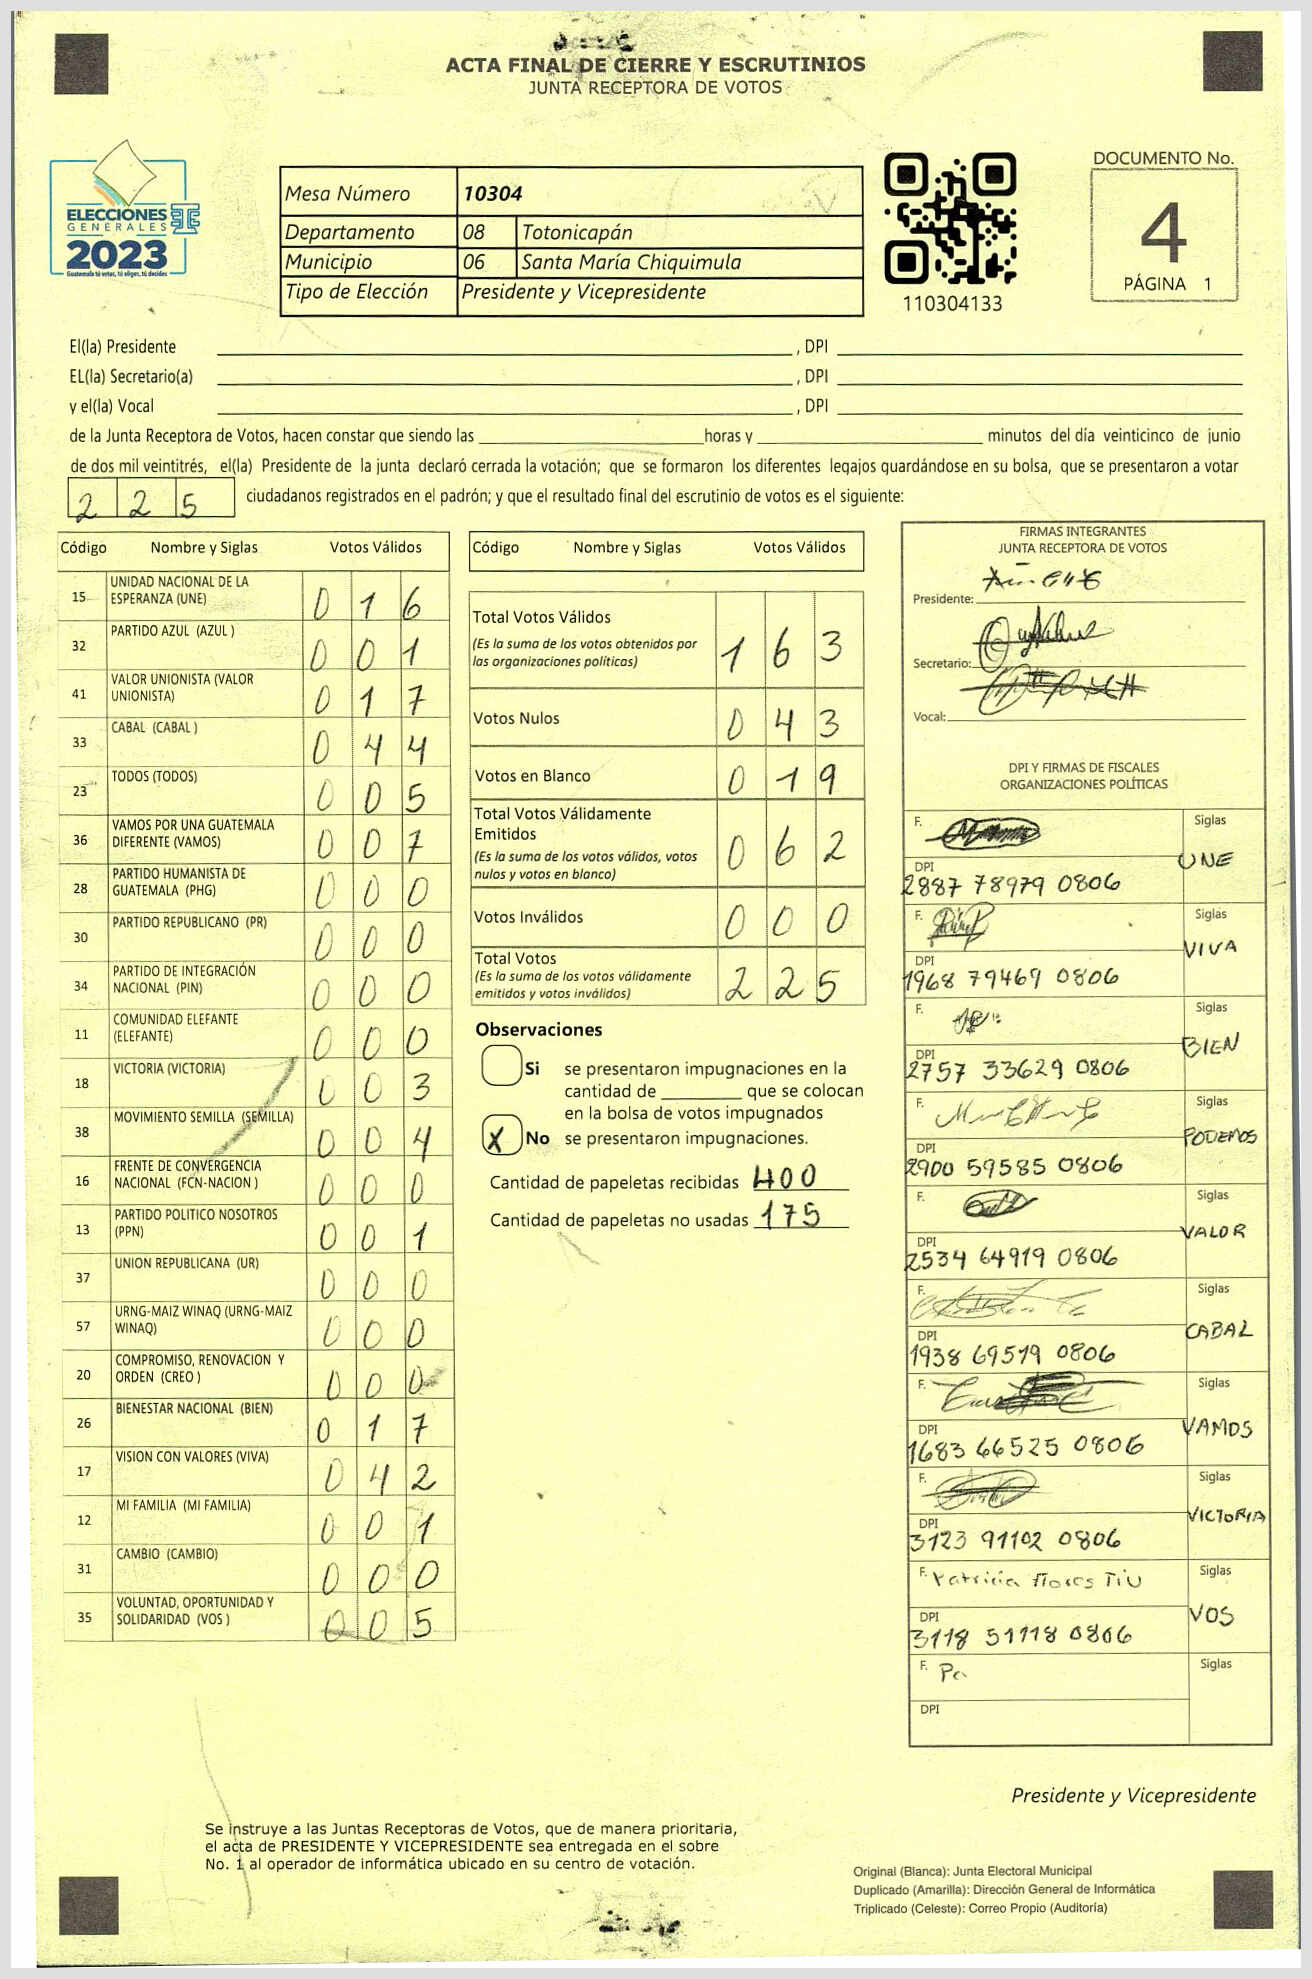 ACTA FINAL DE CIERRE Y ESCRUTINIOS
JUNTA RECEPTORA DE VOTOS
ELECCIONES
GENERALES
2023
Guatemala tú votas, tú eliges, tú decides
Mesa Número 10304
Departamento 08 Totonicapán
Municipio 06 Santa María Chiquimula
Tipo de Elección Presidente y Vicepresidente
110304133
DOCUMENTO No.
4
PÁGINA 1
El(la) Presidente , DPI
EL(la) Secretario(a) , DPI
y el(la) Vocal , DPI
de la Junta Receptora de Votos, hacen constar que siendo las horas y minutos del día veinticinco de junio
de dos mil veintitrés, el(la) Presidente de la junta declaró cerrada la votación; que se formaron los diferentes legajos guardándose en su bolsa, que se presentaron a votar
2 2 5 ciudadanos registrados en el padrón; y que el resultado final del escrutinio de votos es el siguiente:
Código Nombre y Siglas Votos Válidos
15 UNIDAD NACIONAL DE LA ESPERANZA (UNE) 0 1 6
32 PARTIDO AZUL (AZUL ) 0 0 1
41 VALOR UNIONISTA (VALOR UNIONISTA) 0 1 7
33 CABAL (CABAL ) 0 4 4
23 TODOS (TODOS) 0 0 5
36 VAMOS POR UNA GUATEMALA DIFERENTE (VAMOS) 0 0 7
28 PARTIDO HUMANISTA DE GUATEMALA (PHG) 0 0 0
30 PARTIDO REPUBLICANO (PR) 0 0 0
34 PARTIDO DE INTEGRACIÓN NACIONAL (PIN) 0 0 0
11 COMUNIDAD ELEFANTE (ELEFANTE) 0 0 0
18 VICTORIA (VICTORIA) 0 0 3
38 MOVIMIENTO SEMILLA (SEMILLA) 0 0 4
16 FRENTE DE CONVERGENCIA NACIONAL (FCN-NACION ) 0 0 0
13 PARTIDO POLITICO NOSOTROS (PPN) 0 0 1
37 UNION REPUBLICANA (UR) 0 0 0
57 URNG-MAIZ WINAQ (URNG-MAIZ WINAQ) 0 0 0
20 COMPROMISO, RENOVACION Y ORDEN (CREO ) 0 0 0
26 BIENESTAR NACIONAL (BIEN) 0 1 7
17 VISION CON VALORES (VIVA) 0 4 2
12 MI FAMILIA (MI FAMILIA) 0 0 1
31 CAMBIO (CAMBIO) 0 0 0
35 VOLUNTAD, OPORTUNIDAD Y SOLIDARIDAD (VOS ) 0 0 5
Código Nombre y Siglas Votos Válidos
Total Votos Válidos 1 6 3
(Es la suma de los votos obtenidos por
las organizaciones políticas)
Votos Nulos 0 4 3
Votos en Blanco 0 1 9
Total Votos Válidamente
Emitidos 0 6 2
(Es la suma de los votos válidos, votos
nulos y votos en blanco)
Votos Inválidos 0 0 0
Total Votos 2 2 5
(Es la suma de los votos válidamente
emitidos y votos inválidos)
Observaciones
Si se presentaron impugnaciones en la
cantidad de que se colocan
en la bolsa de votos impugnados
X No se presentaron impugnaciones.
Cantidad de papeletas recibidas 400
Cantidad de papeletas no usadas 175
FIRMAS INTEGRANTES
JUNTA RECEPTORA DE VOTOS
Presidente:
Secretario:
Vocal:
DPI Y FIRMAS DE FISCALES
ORGANIZACIONES POLÍTICAS
F. Siglas UNE
DPI 2887 78979 0806
F. Siglas VIVA
DPI 1968 79469 0806
F. Siglas BIEN
DPI 2757 33629 0806
F. Siglas PODEMOS
DPI 2900 59585 0806
F. Siglas VALOR
DPI 2534 64919 0806
F. Siglas CABAL
DPI 1938 69519 0806
F. Siglas VAMOS
DPI 1683 66525 0806
F. Siglas VICTORIA
DPI 3123 91102 0806
F. Patricia Flores Tiu Siglas VOS
DPI 3118 51118 0806
F. Pa Siglas
DPI
Presidente y Vicepresidente
Se instruye a las Juntas Receptoras de Votos, que de manera prioritaria,
el acta de PRESIDENTE Y VICEPRESIDENTE sea entregada en el sobre
No. 1 al operador de informática ubicado en su centro de votación.
Original (Blanca): Junta Electoral Municipal
Duplicado (Amarilla): Dirección General de Informática
Triplicado (Celeste): Correo Propio (Auditoría)